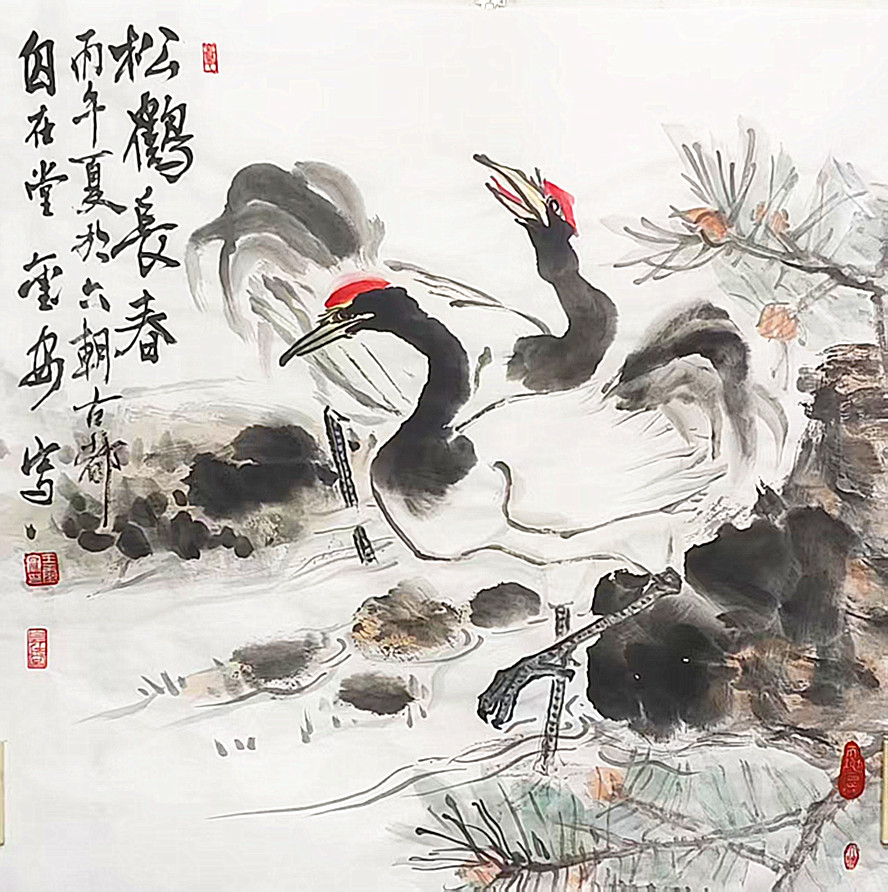 松鹤長春
丙午夏於六朝古都
自在堂 寫